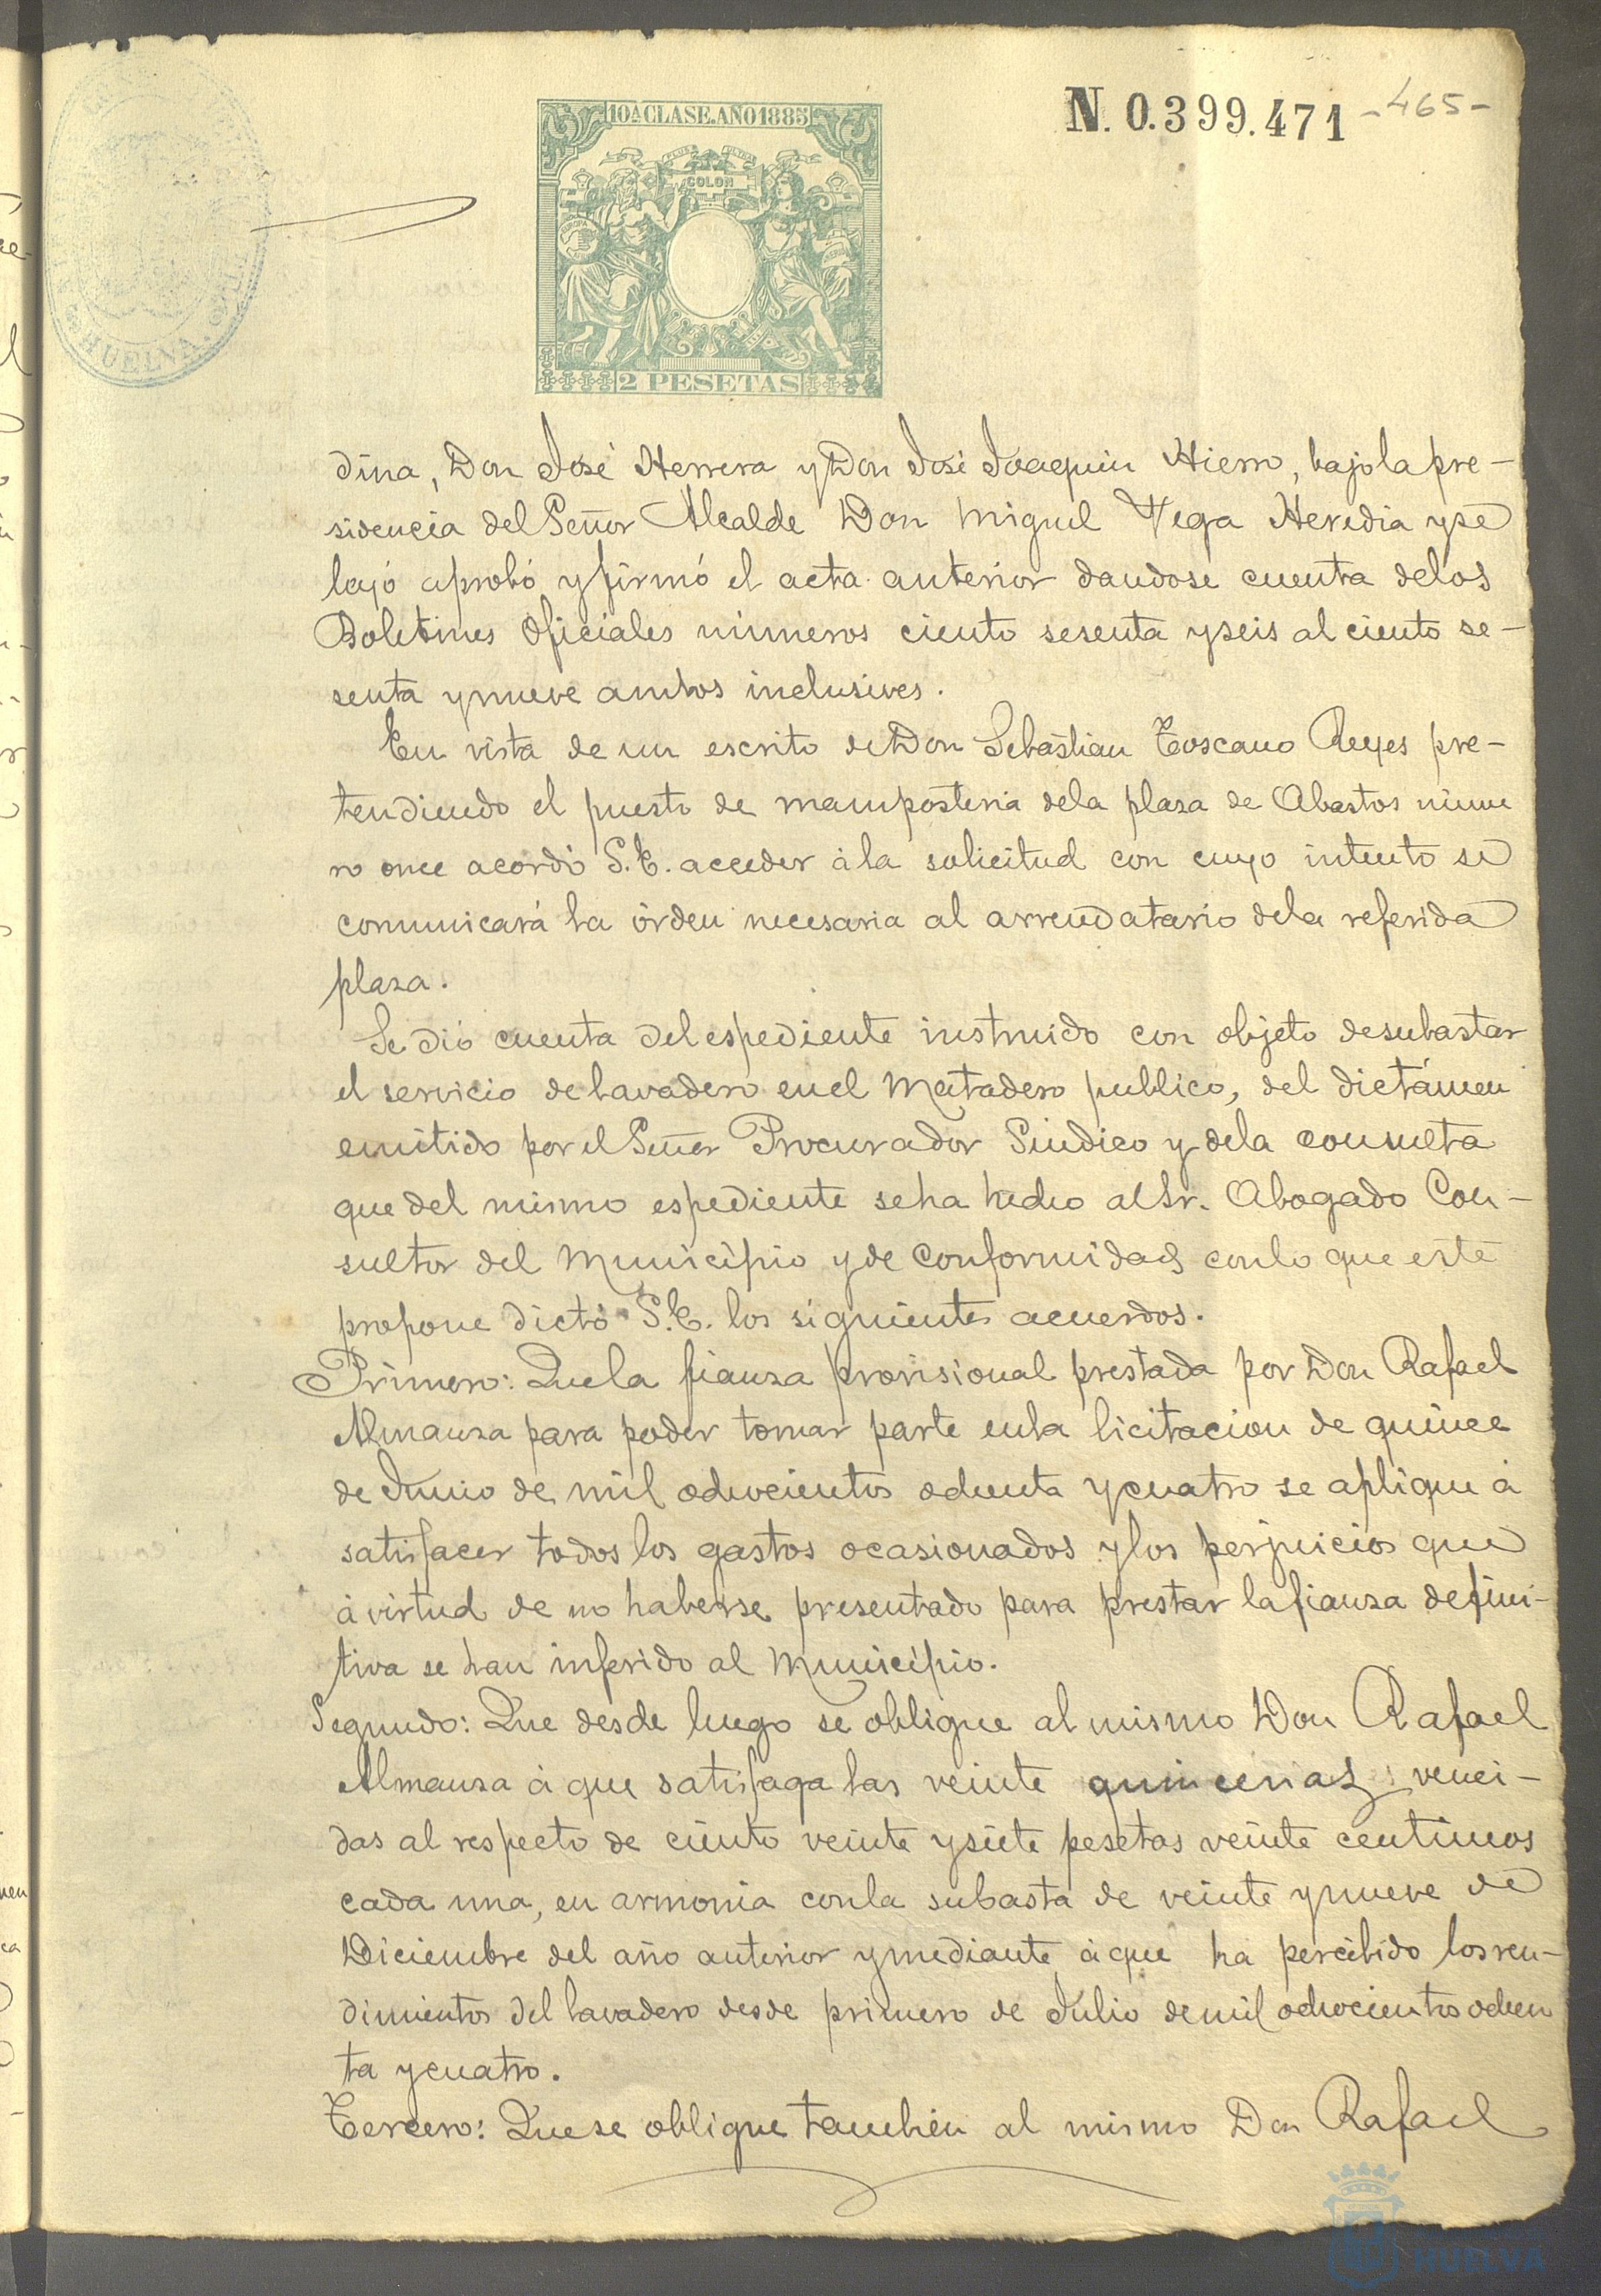 10ª CLASE. AÑO 1885
N. 0.399.471 - 465 -
PLUS ULTRA
COLON
HUELVA.
2 PESETAS
dina, Don José Herrera y Don José Joaquin Hierro, bajo la pre-
sidencia del Señor Alcalde Don Miguel Vega Heredia y se
leyó aprobó y firmó el acta anterior dandose cuenta de los
Boletines Oficiales números ciento sesenta y seis al ciento se-
senta y nueve ambos inclusives.
En vista de un escrito de Don Sebastian Toscano Reyes pre-
tendiendo el puesto de mamposteria de la plaza de Abastos núme
ro once acordó S.E. acceder á la solicitud con cuyo intento se
comunicará la órden necesaria al arrendatario de la referida
plaza.
Se dió cuenta del espediente instruido con objeto de subastar
el servicio de lavadero en el Matadero publico, del dictámen
emitido por el Señor Procurador Sindico y de la consulta
que del mismo espediente se ha hecho al Sr. Abogado Con-
sultor del Municipio y de conformidad con lo que este
propone dictó S.E. los siguientes acuerdos.
Primero: Que la fianza provisional prestada por Don Rafael
Almanza para poder tomar parte en la licitacion de quince
de Junio de mil ochocientos ochenta y cuatro se aplique á
satisfacer todos los gastos ocasionados y los perjuicios que
á virtud de no haberse presentado para prestar la fianza defini-
tiva se han inferido al Municipio.
Segundo: Que desde luego se obligue al mismo Don Rafael
Almanza á que satisfaga las veinte quincenas venci-
das al respecto de ciento veinte y siete pesetas veinte centimos
cada una, en armonia con la subasta de veinte y nueve de
Diciembre del año anterior y mediante á que ha percibido los ren-
dimientos del lavadero desde primero de Julio de mil ochocientos ochen
ta y cuatro.
Tercero: Que se obligue tambien al mismo Don Rafael
HUELVA